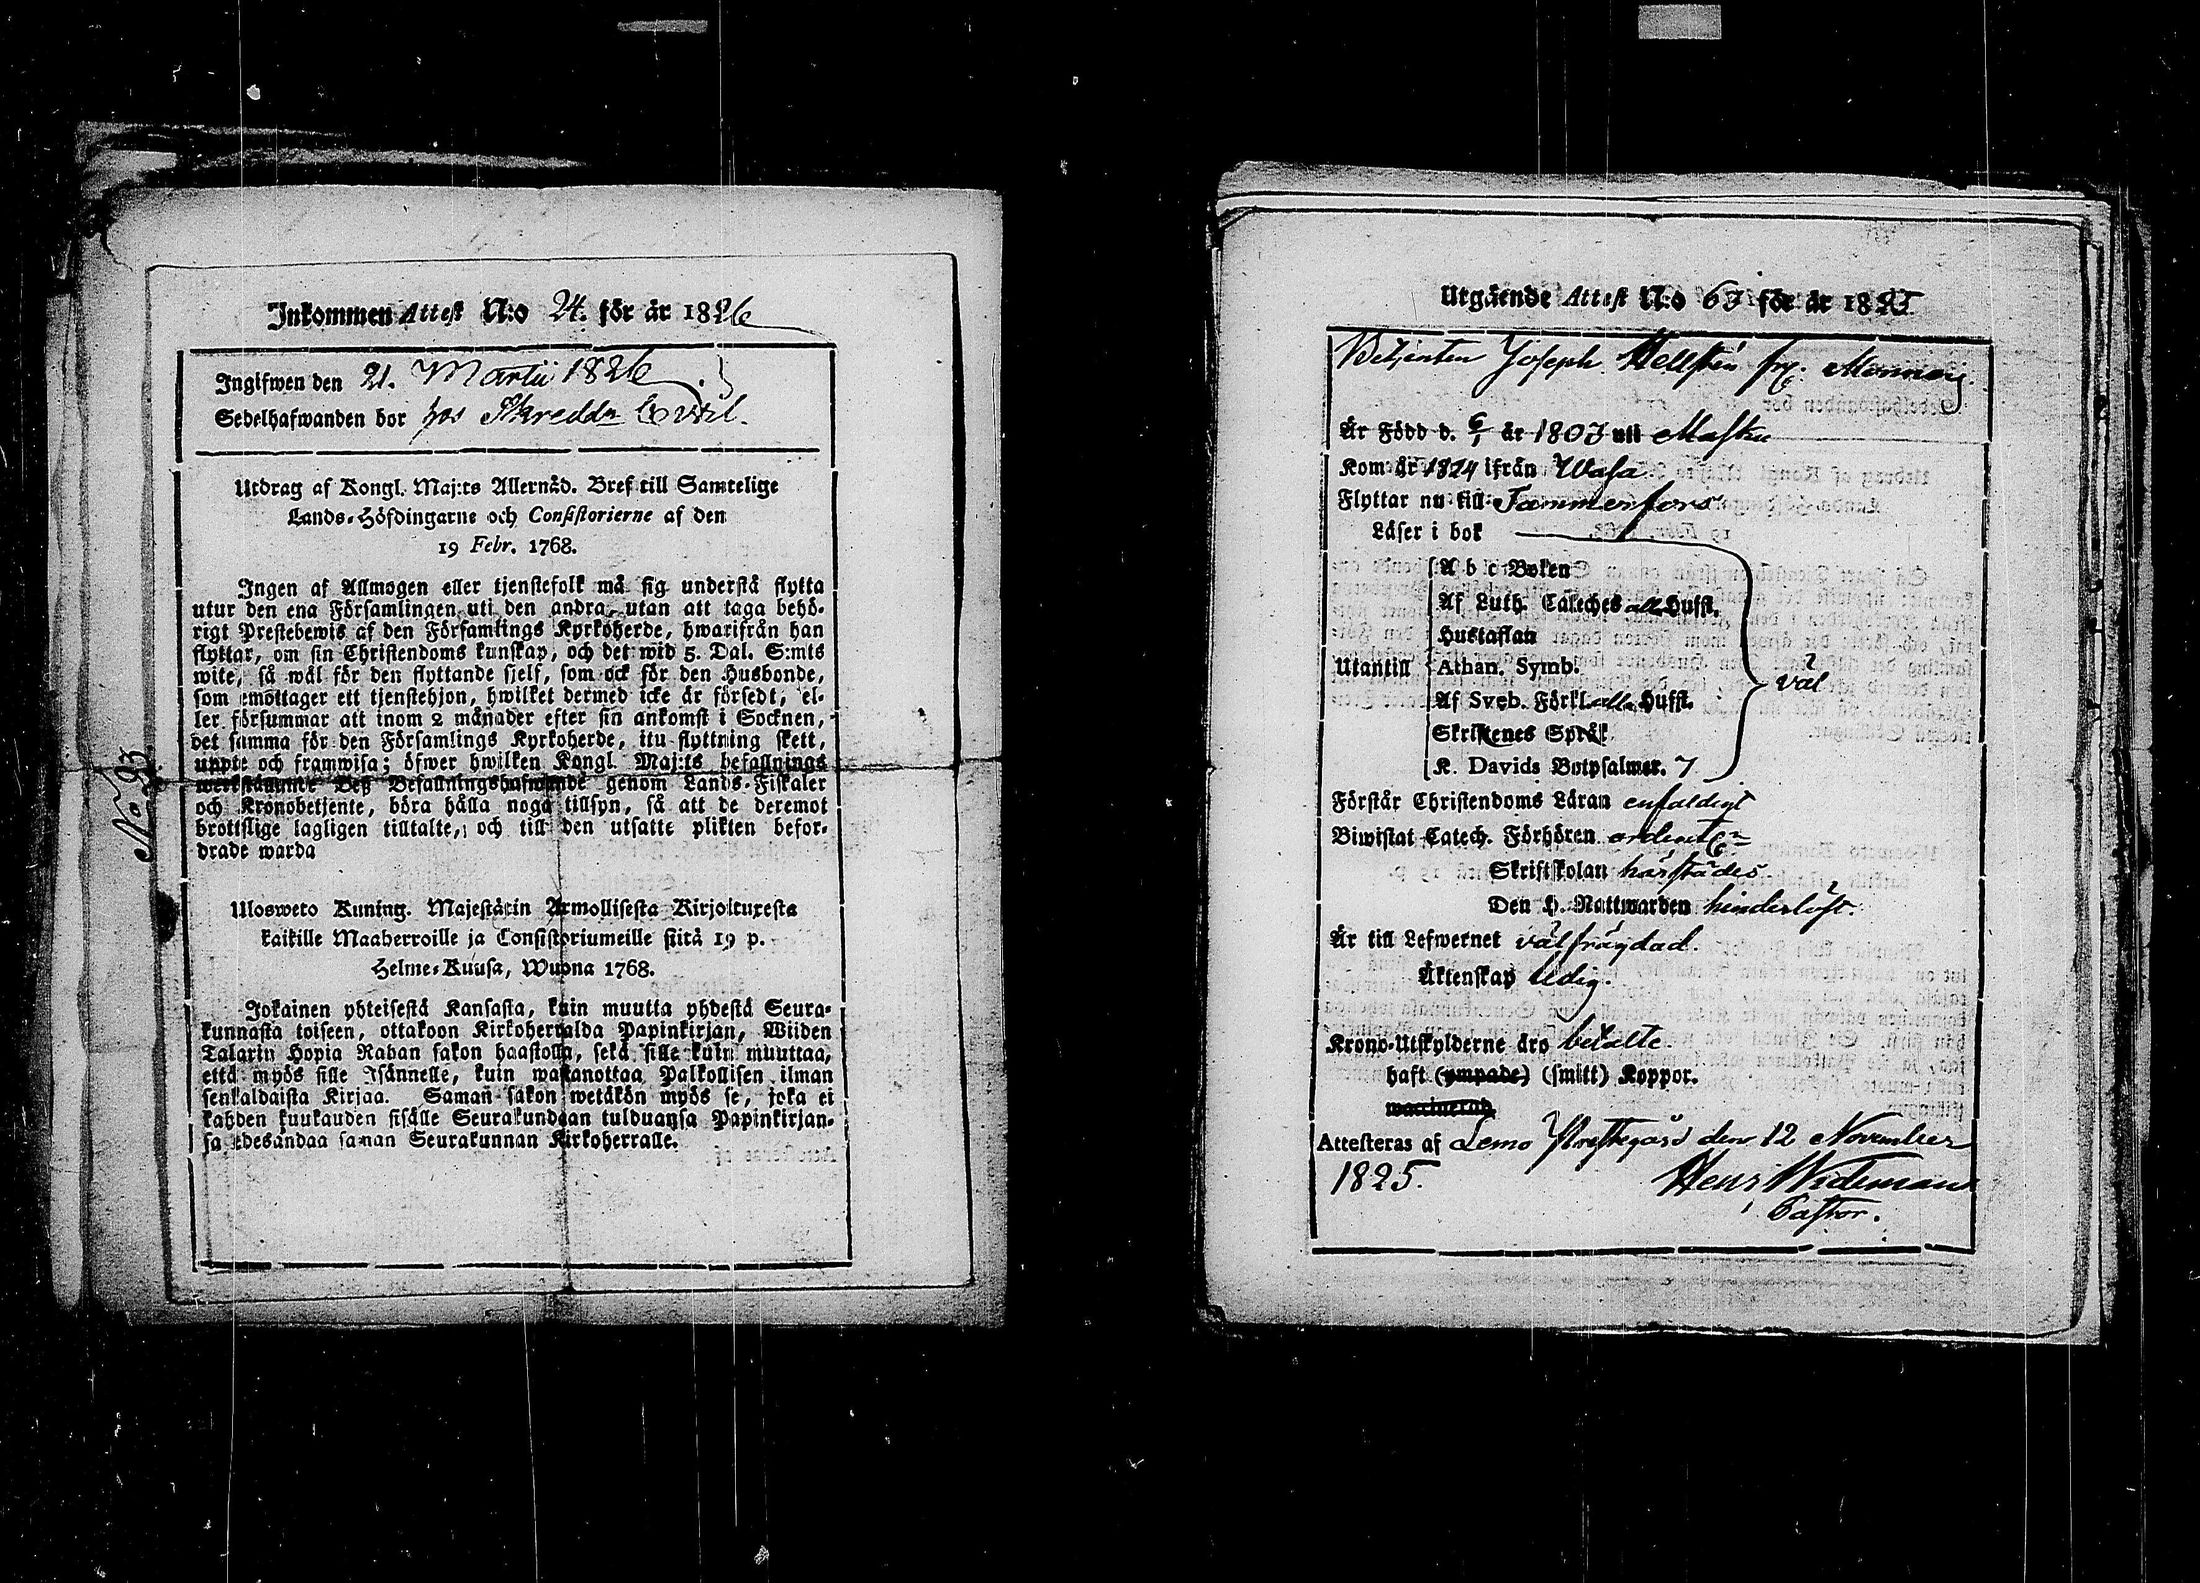 Inkommen Attest N:o 24. för år 1826
Ingifwen den 21. Martii 1826
Sedelhafwanden bor hos Skredd:
Utdrag af Kongl. Maj:ts Allernåd. Bref till Samtelige
Lands-Höfdingarne och Consistorierne af den
19 Febr. 1768.
Ingen af Allmogen eller tjenstefolk må sig understå flytta
utur den ena Församlingen uti den andra, utan att taga behö-
rigt Prestebewis af den Församlings Kyrkoherde, hwarifrån han
flyttar, om sin Christendoms kunskap, och det wid 5. Dal. S:mts
wite, så wäl för den flyttande sjelf, som ock för den Husbonde,
som emottager ett tjenstehjon, hwilket dermed icke är försedt, el-
ler försummar att inom 2 månader efter sin ankomst i Socknen,
det samma för den Församlings Kyrkoherde, itu flyttning skett,
uppte och framwisa; öfwer hwilken Kongl. Maj:ts befallnings
werkställande Deß Befallningshafwande genom Lands-Fiskaler
och Kronobetjente, böra hålla noga tillsyn, så att de deremot
brottslige lagligen tilltalte, och till den utsatte plikten befor-
drade warda
No 93
Ulosweto Kuning. Majestätin Armollisesta Kirjoituxesta
kaikille Maaherroille ja Consistoriumeille siitä 19 p.
Helme-Kuusa, Wuona 1768.
Jokainen yhteisestä Kansasta, kuin muutta yhdestä Seura-
kunnasta toiseen, ottakoon Kirkoherralda Papinkirjan, Wiiden
Talarin Hopia Rahan sakon haastolla, sekä sille kuin muuttaa,
että myös sille Isännelle, kuin wastanottaa Palkollisen ilman
senkaldaista Kirjaa. Saman sakon wetäkön myös se, joka ei
kahden kuukauden sisälle Seurakundaan tulduansa Papinkirjan-
sa edesandaa saman Seurakunnan Kirkoherralle.
Utgående Attest N:o 63 för år 1825
Betjenten Joseph Hellstén frn
Är Född d. 6/1 år 1803 uti Masku
Kom år 1824 ifrån Wasa
Flyttar nu till Tammerfors
Läser i bok
A b c Boken
Af Luth. Cateches alla Hufst.
Hustaflan
Utantill Athan. Symb. väl
Af Sveb. Förkl. alla Hufst.
Skriftenes Språk
K. Davids Botpsalmer. 7
Förstår Christendoms Läran enfaldigt
Biwistat Catech. Förhören ordentel:
Skriftskolan härstädes.
Den H. Nattwarden hinderlöst.
Är till Lefwernet välfrägdad.
Äktenskap ledig.
Krono-Utskylderne äro betalte.
haft (ympade) (smitt) Koppor.
waccinerad.
Attesteras af Lemo Prestegård den 12 November
1825. Henr Wideman
Pastor.